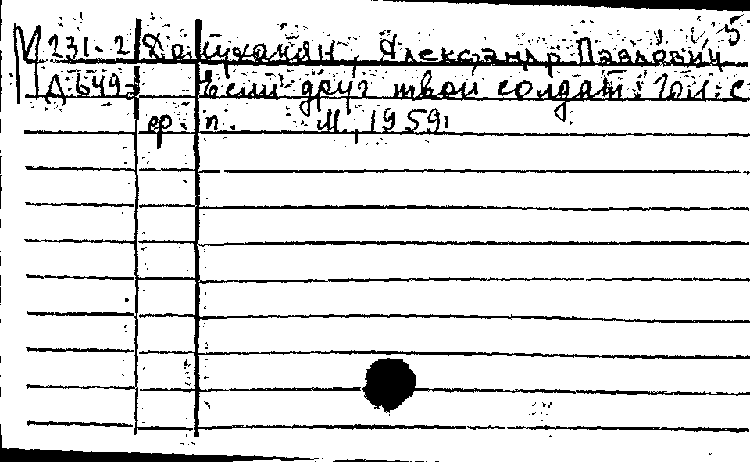 М 231-2 Долуханян, Александр Павлович 5
Д 649 Если друг твой солдат: Гол. с
ер. п. М., 1959.